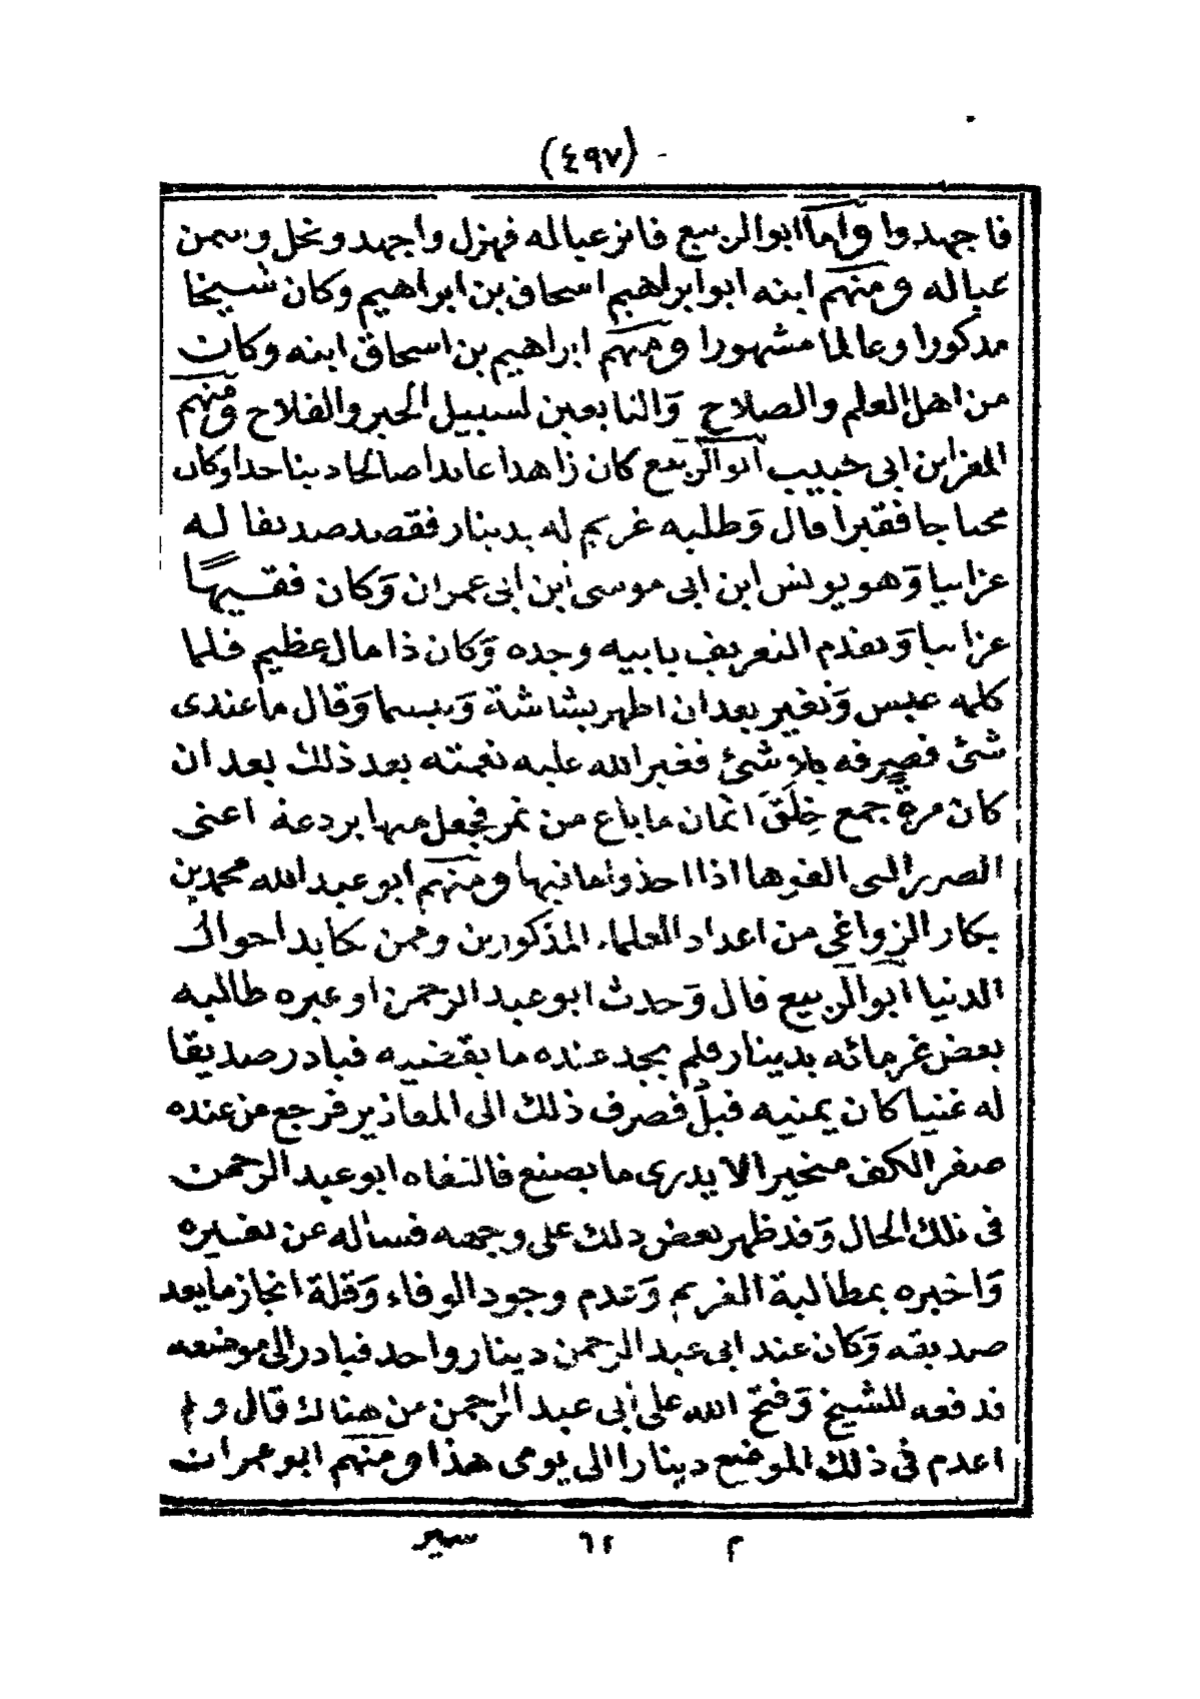 (٤٩٧)
فاجهدوا واما ابوالربيع فاثر عياله فهزل واجهد ونحل وسمن
عياله ومنهم ابنه ابوابراهيم اسحاق بن ابراهيم وكان شيخا
مذكورا وعالما مشهورا ومنهم ابراهيم بن اسحاق ابنه وكان
من اهل العلم والصلاح والتابعين لسبيل الخير والفلاح ومنهم
المعز ابن ابى حبيب ابوالربيع كان زاهدا عابدا صالحا دينا جدا وكان
محتاجا فقيرا قال وطلبه غريم له بدينار فقصد صديقا له
عزابيا وهو يونس ابن ابى موسى ابن ابى عمران وكان فقيها
عزابيا وتقدم التعريف بابيه وجده وكان ذا مال عظيم فلما
كلمه عبس وتغير بعد ان اظهر بشاشة وتبسما وقال ماعندى
شئ فصرفه بلا شئ فغير الله عليه نعمته بعد ذلك بعد ان
كان مرة جمع خِلَقَ اثمان ماباع من تمر فجعل منها بردعة اعنى
الصرر التى القوها اذا اخذوا مافيها ومنهم ابو عبدالله محمد بن
بكار الزواغى من اعداد العلماء المذكورين وممن كابد احوال
الدنيا ابوالربيع قال وحدث ابو عبدالرحمن او غيره طالبه
بعض غرمائه بدينار فلم يجد عنده ما يقضيه فبادر صديقا
له غنيا كان يمنيه قبل فصرف ذلك الى المعاذير فرجع من عنده
صفر الكف متحيرا لا يدرى ما يصنع فالتقاه ابو عبد الرحمن
فى تلك الحال وقد ظهر بعض ذلك على وجهه فسأله عن تغيره
واخبره بمطالبة الغريم وعدم وجود الوفاء وقلة انجاز مايعد
صديقه وكان عند ابى عبد الرحمن دينار واحد فبادر الى موضعه
فدفعه للشيخ وفتح الله على ابى عبد الرحمن من هناك قال ولم
اعدم فى ذلك الموضع دينارا الى يومى هذا ومنهم ابو عمران
م ٦٢ سير